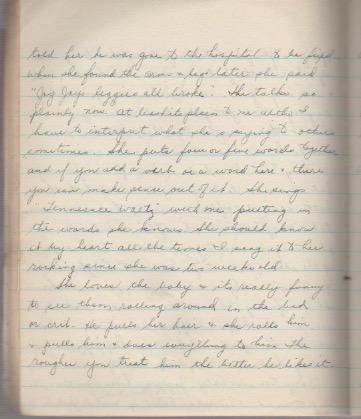 told her he was gone to the hospital to be fixed
when she found the arms & legs later she said
"Jay Jay's leggies all broke". She talks so
plainly now. At least its plain to me altho I
have to interpret what she is saying to others
sometimes. She puts four or five words together
and if you add a verb or a word here & there
you can make sense out of it. She sings
"Tennessee Waltz" with me putting in
the words she knows. She should know
it by heart all the times I sang it to her
rocking since she was two weeks old.
She loves the baby & its really funny
to see them rolling around in the bed
or crib. He pulls her hair & she rolls him
& pulls him & does everything to him. The
rougher you treat him the better he likes it.